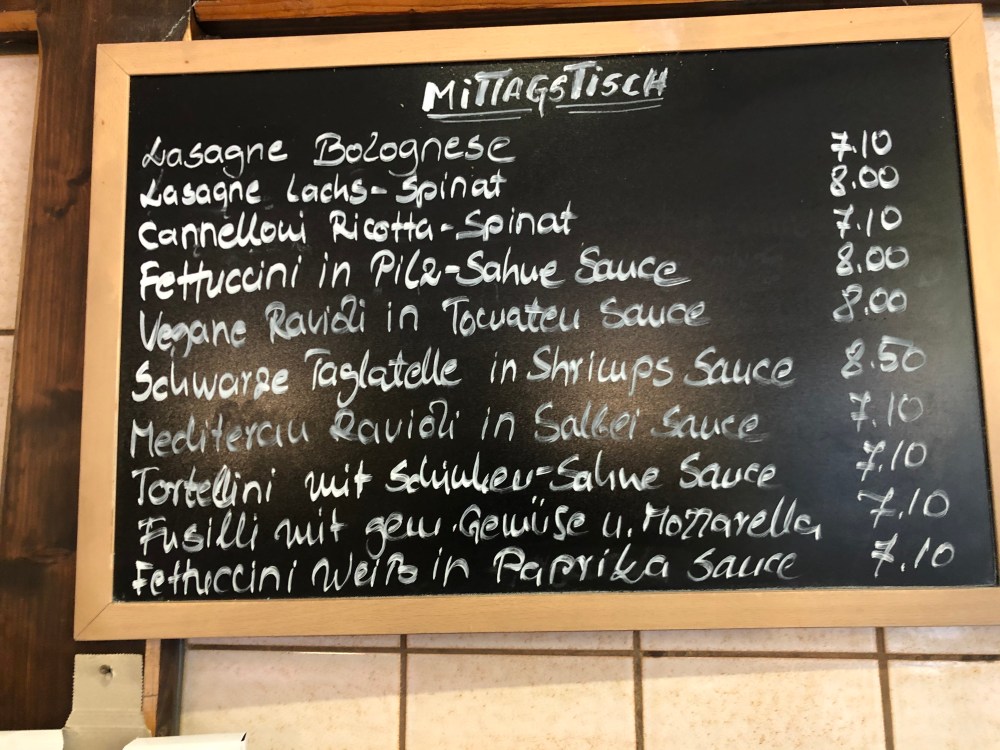 MITTAGSTISCH
Lasagne Bolognese 7.10
Lasagne Lachs-Spinat 8.00
Cannelloni Ricotta-Spinat 7.10
Fettuccini in Pilz-Sahne Sauce 8.00
Vegane Ravioli in Tomaten Sauce 8.00
Schwarze Taglatelle in Shrimps Sauce 8.50
Mediteran Ravioli in Salbei Sauce 7.10
Tortellini mit Schinken-Sahne Sauce 7.10
Fusilli mit gem. Gemüse u. Mozzarella 7.10
Fettuccini Weiß in Paprika Sauce 7.10